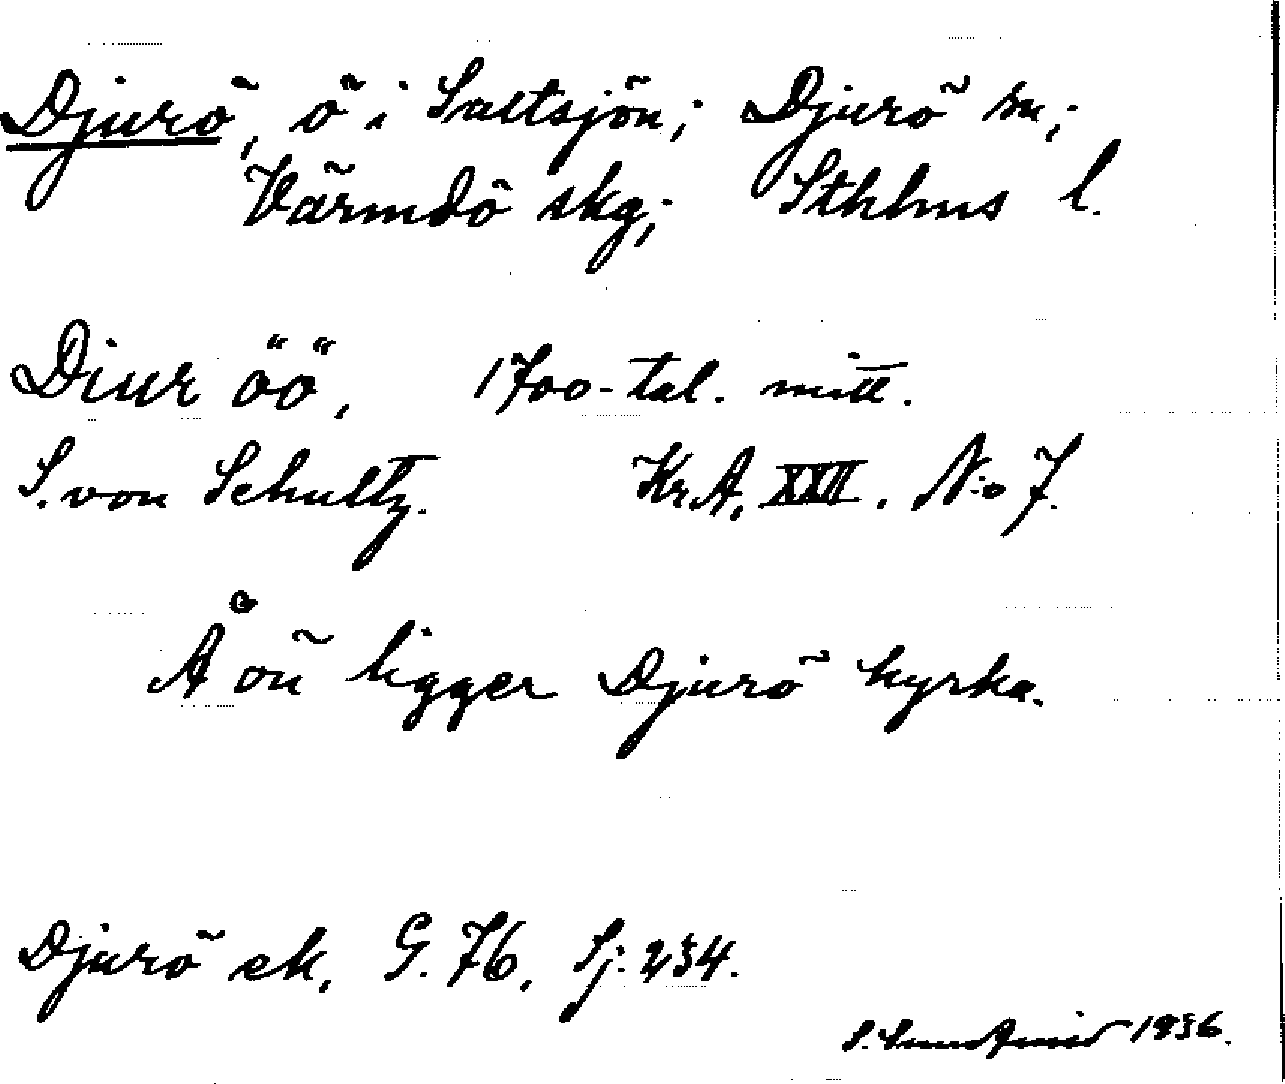 Djurö, ö i Saltsjön; Djurö sn;
Värmdö skg; Sthlms l.
Diur öö, 1700-tal. mitt.
S. von Schultz. Kr.A. XXII. N:o 7.
Å ön ligger Djurö kyrka.
Djurö ek. G. 76, Sj. 234.
S. 1936.